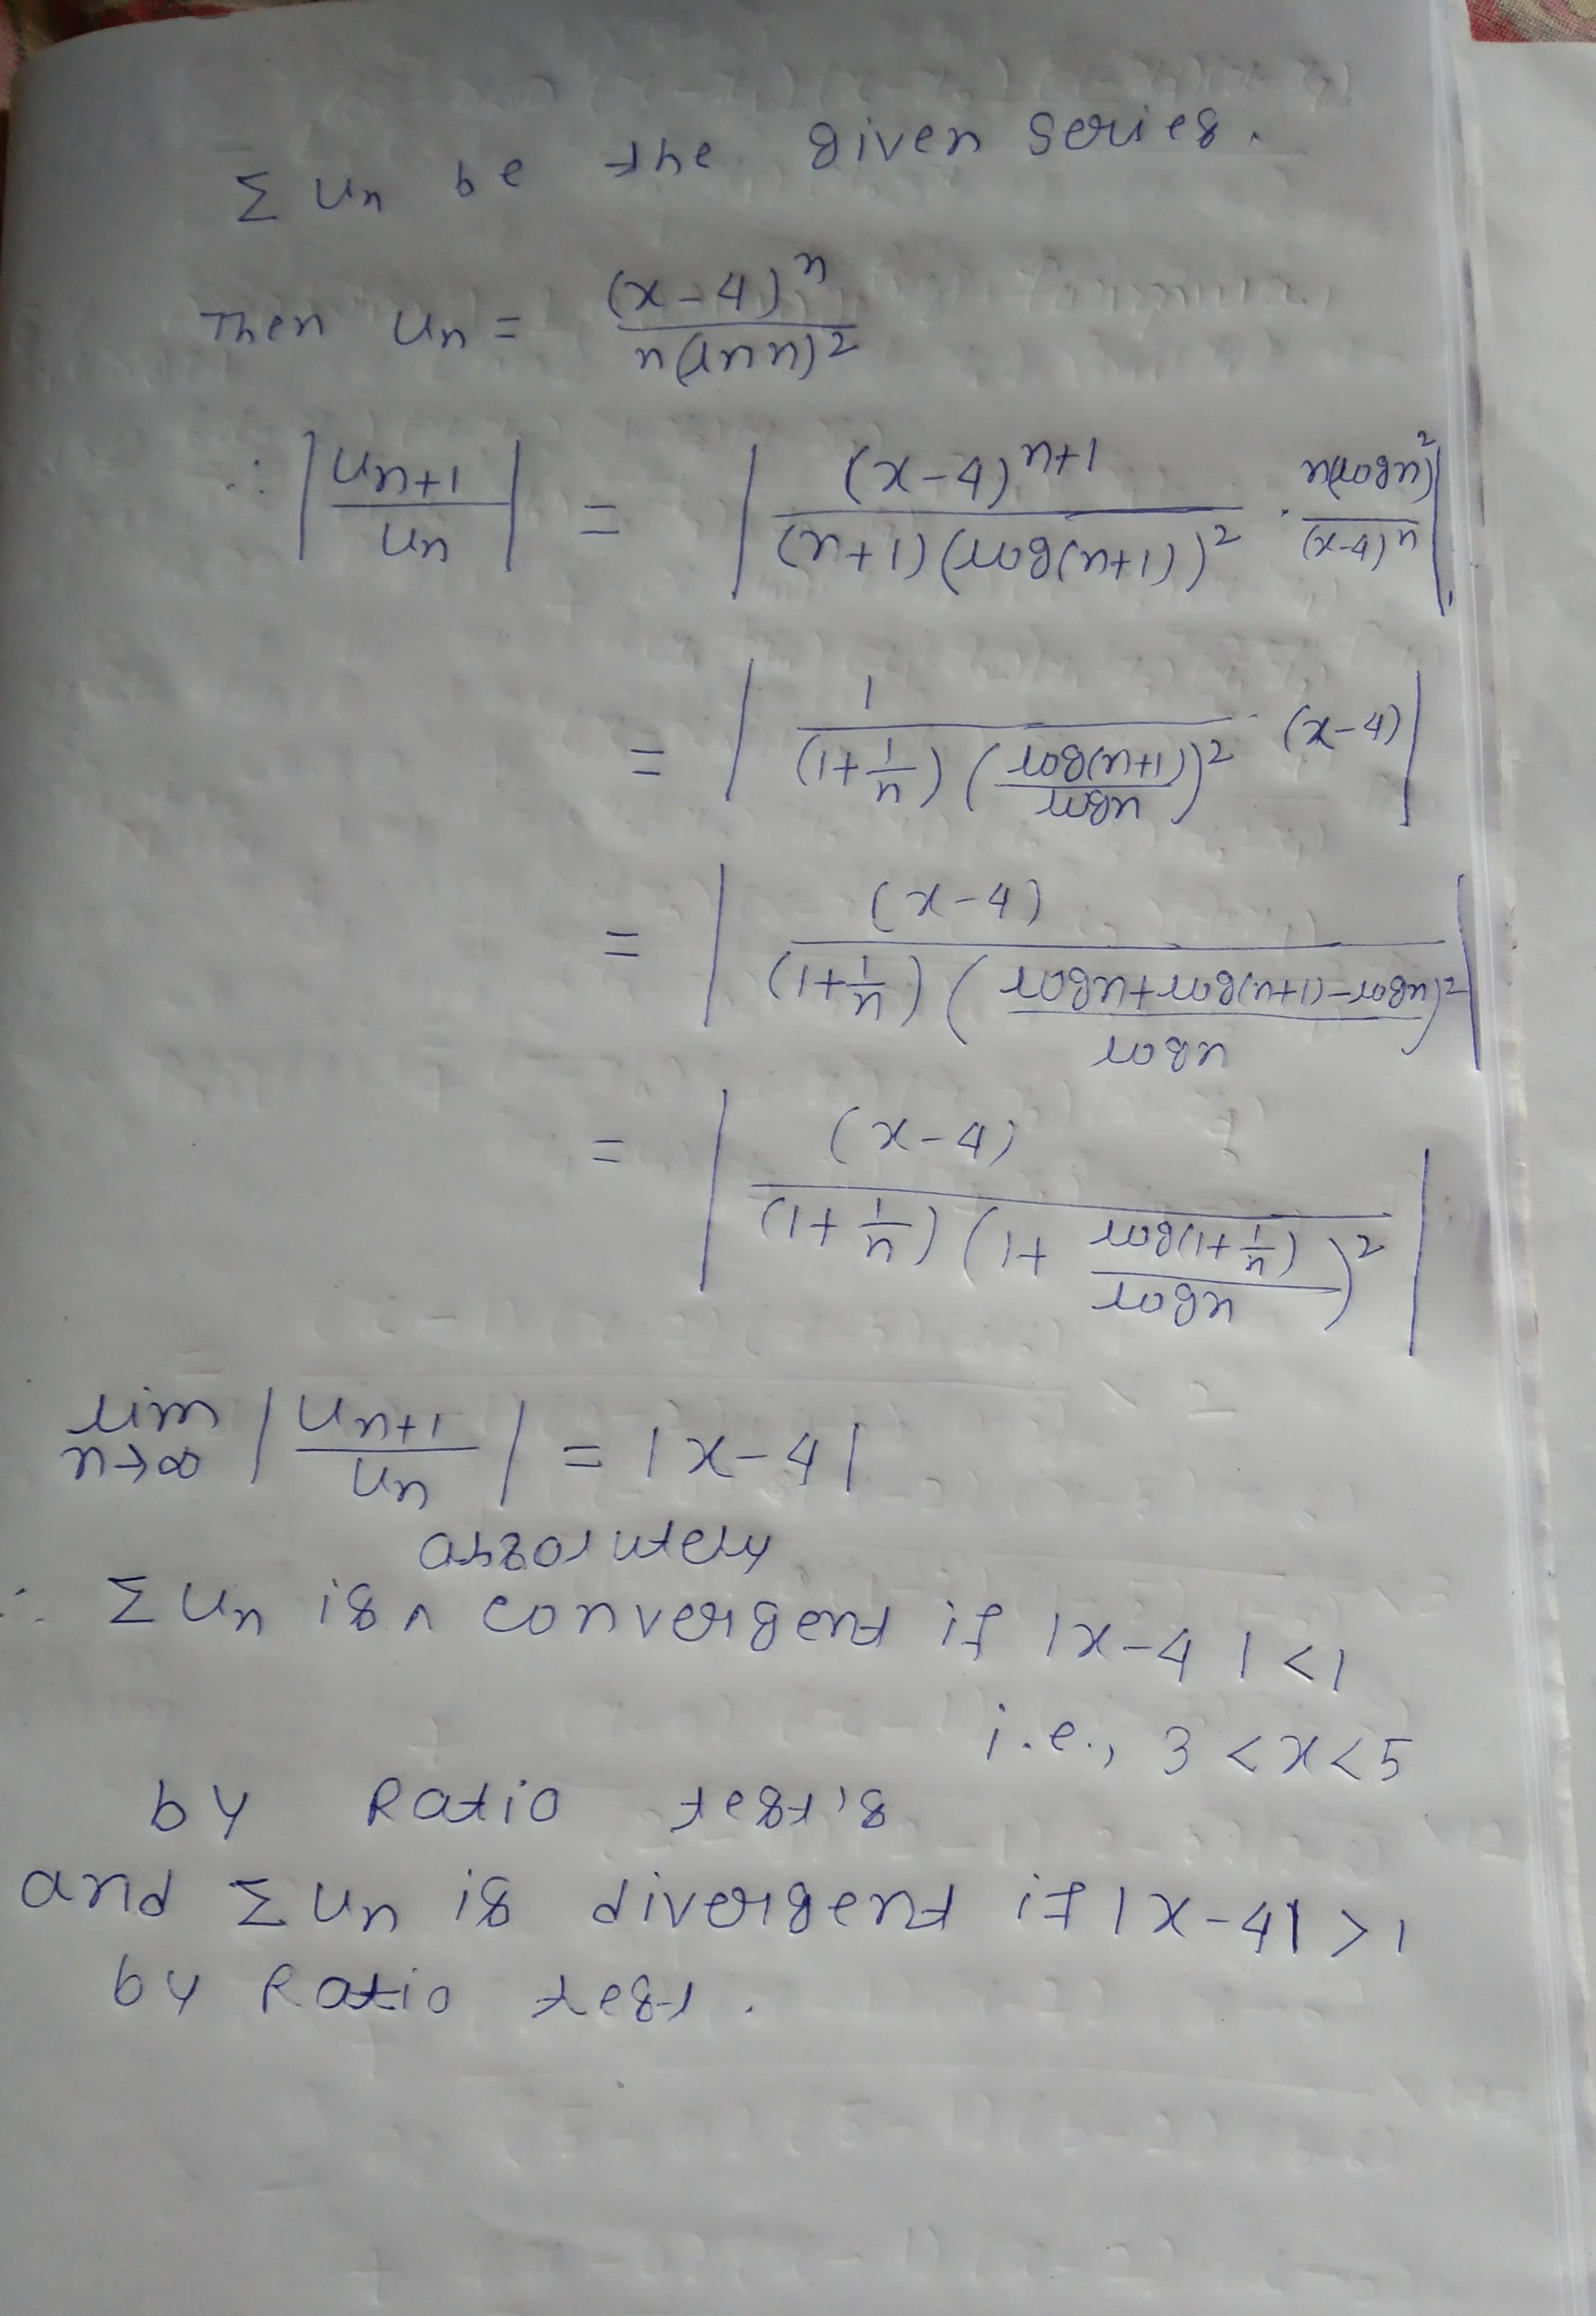 Σ Un be the given series.
Then Un = (x-4)^n / n(ln n)^2
∴ |Un+1 / Un| = | (x-4)^(n+1) / (n+1)(log(n+1))^2 · n(log n)^2 / (x-4)^n |
= | 1 / (1+1/n) (log(n+1) / log n)^2 · (x-4) |
= | (x-4) / (1+1/n) (log n + log(n+1) - log n / log n)^2 |
= | (x-4) / (1+1/n) (1+ log(1+1/n) / log n)^2 |
lim n→∞ |Un+1 / Un| = |x-4|
absolutely
∴ Σ Un is ^ convergent if |x-4| < 1
i.e., 3 < x < 5
by Ratio test's
and Σ Un is divergent if |x-4| > 1
by Ratio test.